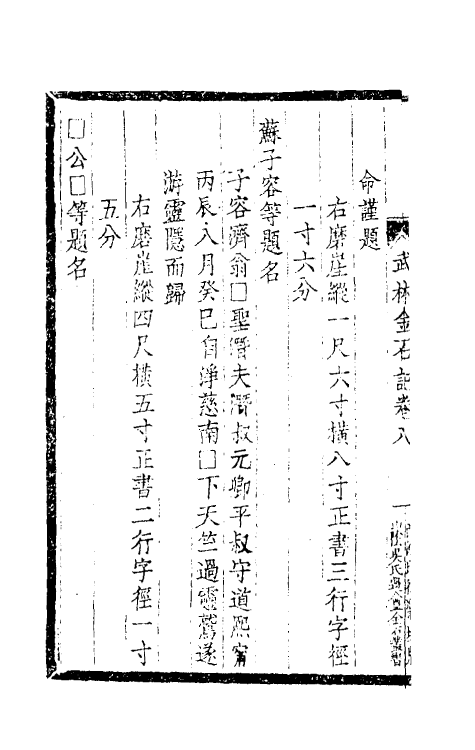 武林金石記卷八　一
命謹題
右磨崖縱一尺六寸橫八寸正書三行字徑
一寸六分
蘇子容等題名
子容濟翁□聖潛夫潛叔元卿平叔守道熙甯
丙辰八月癸巳自淨慈南□下天竺過靈鷲遂
游靈隱而歸
右磨崖縱四尺橫五寸正書二行字徑一寸
五分
□公□等題名